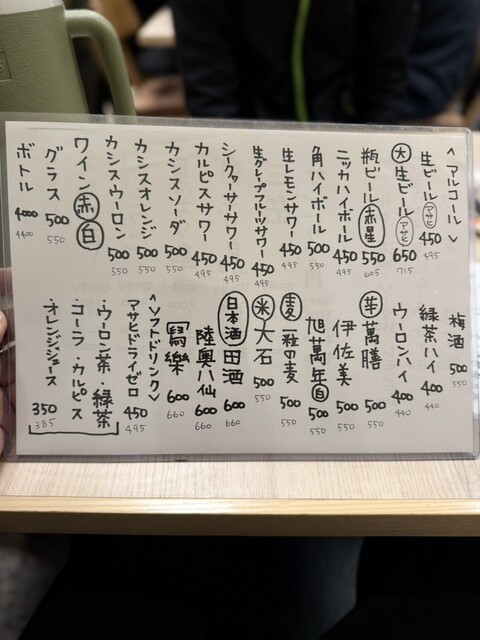 <アルコール>
生ビール アサヒ 450 495
大 生ビール アサヒ 650 715
瓶ビール 赤星 550 605
ニッカハイボール 450 495
角ハイボール 500 550
生レモンサワー 450 495
生グレープフルーツサワー 450 495
シークァーサーサワー 450 495
カルピスサワー 450 495
カシスソーダ 500 550
カシスオレンジ 500 550
カシスウーロン 500 550
ワイン 赤 白
グラス 500 550
ボトル 4000 4400
梅酒 500 550
緑茶ハイ 400 440
ウーロンハイ 400 440
芋 萬膳 500 550
伊佐美 500 550
旭萬年 白 500 550
麦 一粒の麦 500 550
米 大石 500 550
日本酒 田酒 600 660
陸奥八仙 600 660
寫樂 600 660
<ソフトドリンク>
アサヒドライゼロ 450 495
・ウーロン茶・緑茶
・コーラ・カルピス
・オレンジジュース 350 385